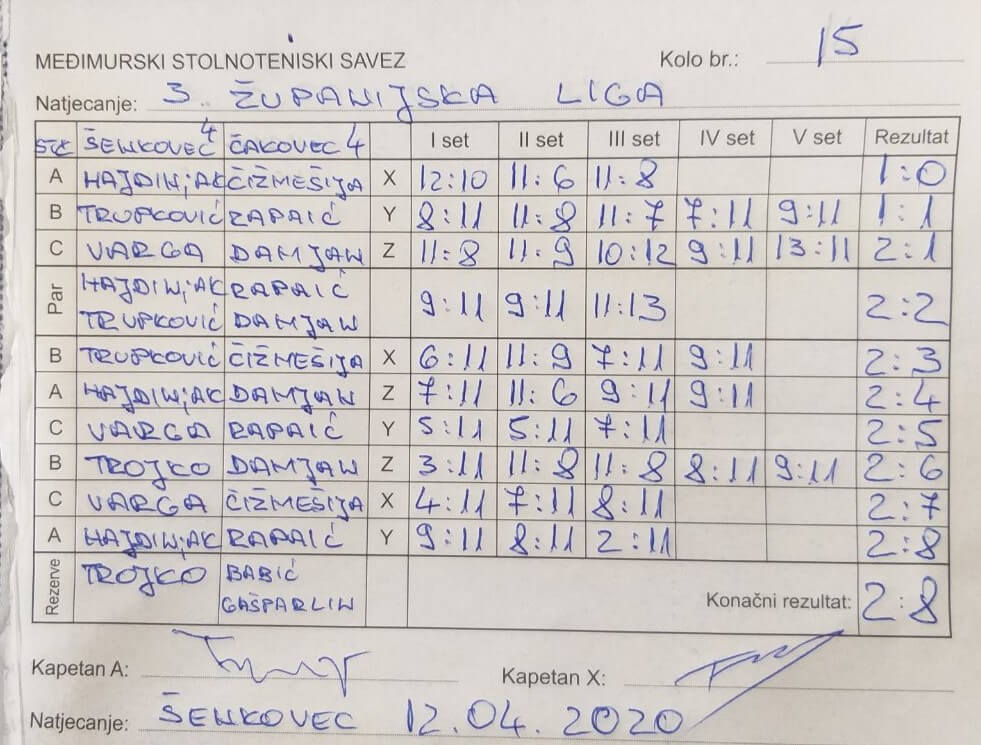 MEĐIMURSKI STOLNOTENISKI SAVEZ Kolo br.: 15
Natjecanje: 3. ŽUPANIJSKA LIGA
ŠENKOVEC 4 ČAKOVEC 4 I set II set III set IV set V set Rezultat
A HAJDINJAK ČIŽMEŠIJA X 12:10 11:6 11:8 1:0
B TRUPKOVIĆ RAPAIĆ Y 8:11 11:8 11:7 7:11 9:11 1:1
C VARGA DAMJAN Z 11:8 11:9 10:12 9:11 13:11 2:1
Par HAJDINJAK RAPAIĆ 9:11 9:11 11:13 2:2
TRUPKOVIĆ DAMJAN
B TRUPKOVIĆ ČIŽMEŠIJA X 6:11 11:9 7:11 9:11 2:3
A HAJDINJAK DAMJAN Z 7:11 11:6 9:11 9:11 2:4
C VARGA RAPAIĆ Y 5:11 5:11 7:11 2:5
B TROJKO DAMJAN Z 3:11 11:8 11:8 8:11 9:11 2:6
C VARGA ČIŽMEŠIJA X 4:11 7:11 8:11 2:7
A HAJDINJAK RAPAIĆ Y 9:11 8:11 2:11 2:8
Rezerve TROJKO BABIĆ
GAŠPARLIN Konačni rezultat: 2:8
Kapetan A: Kapetan X:
Natjecanje: ŠENKOVEC 12.04.2020